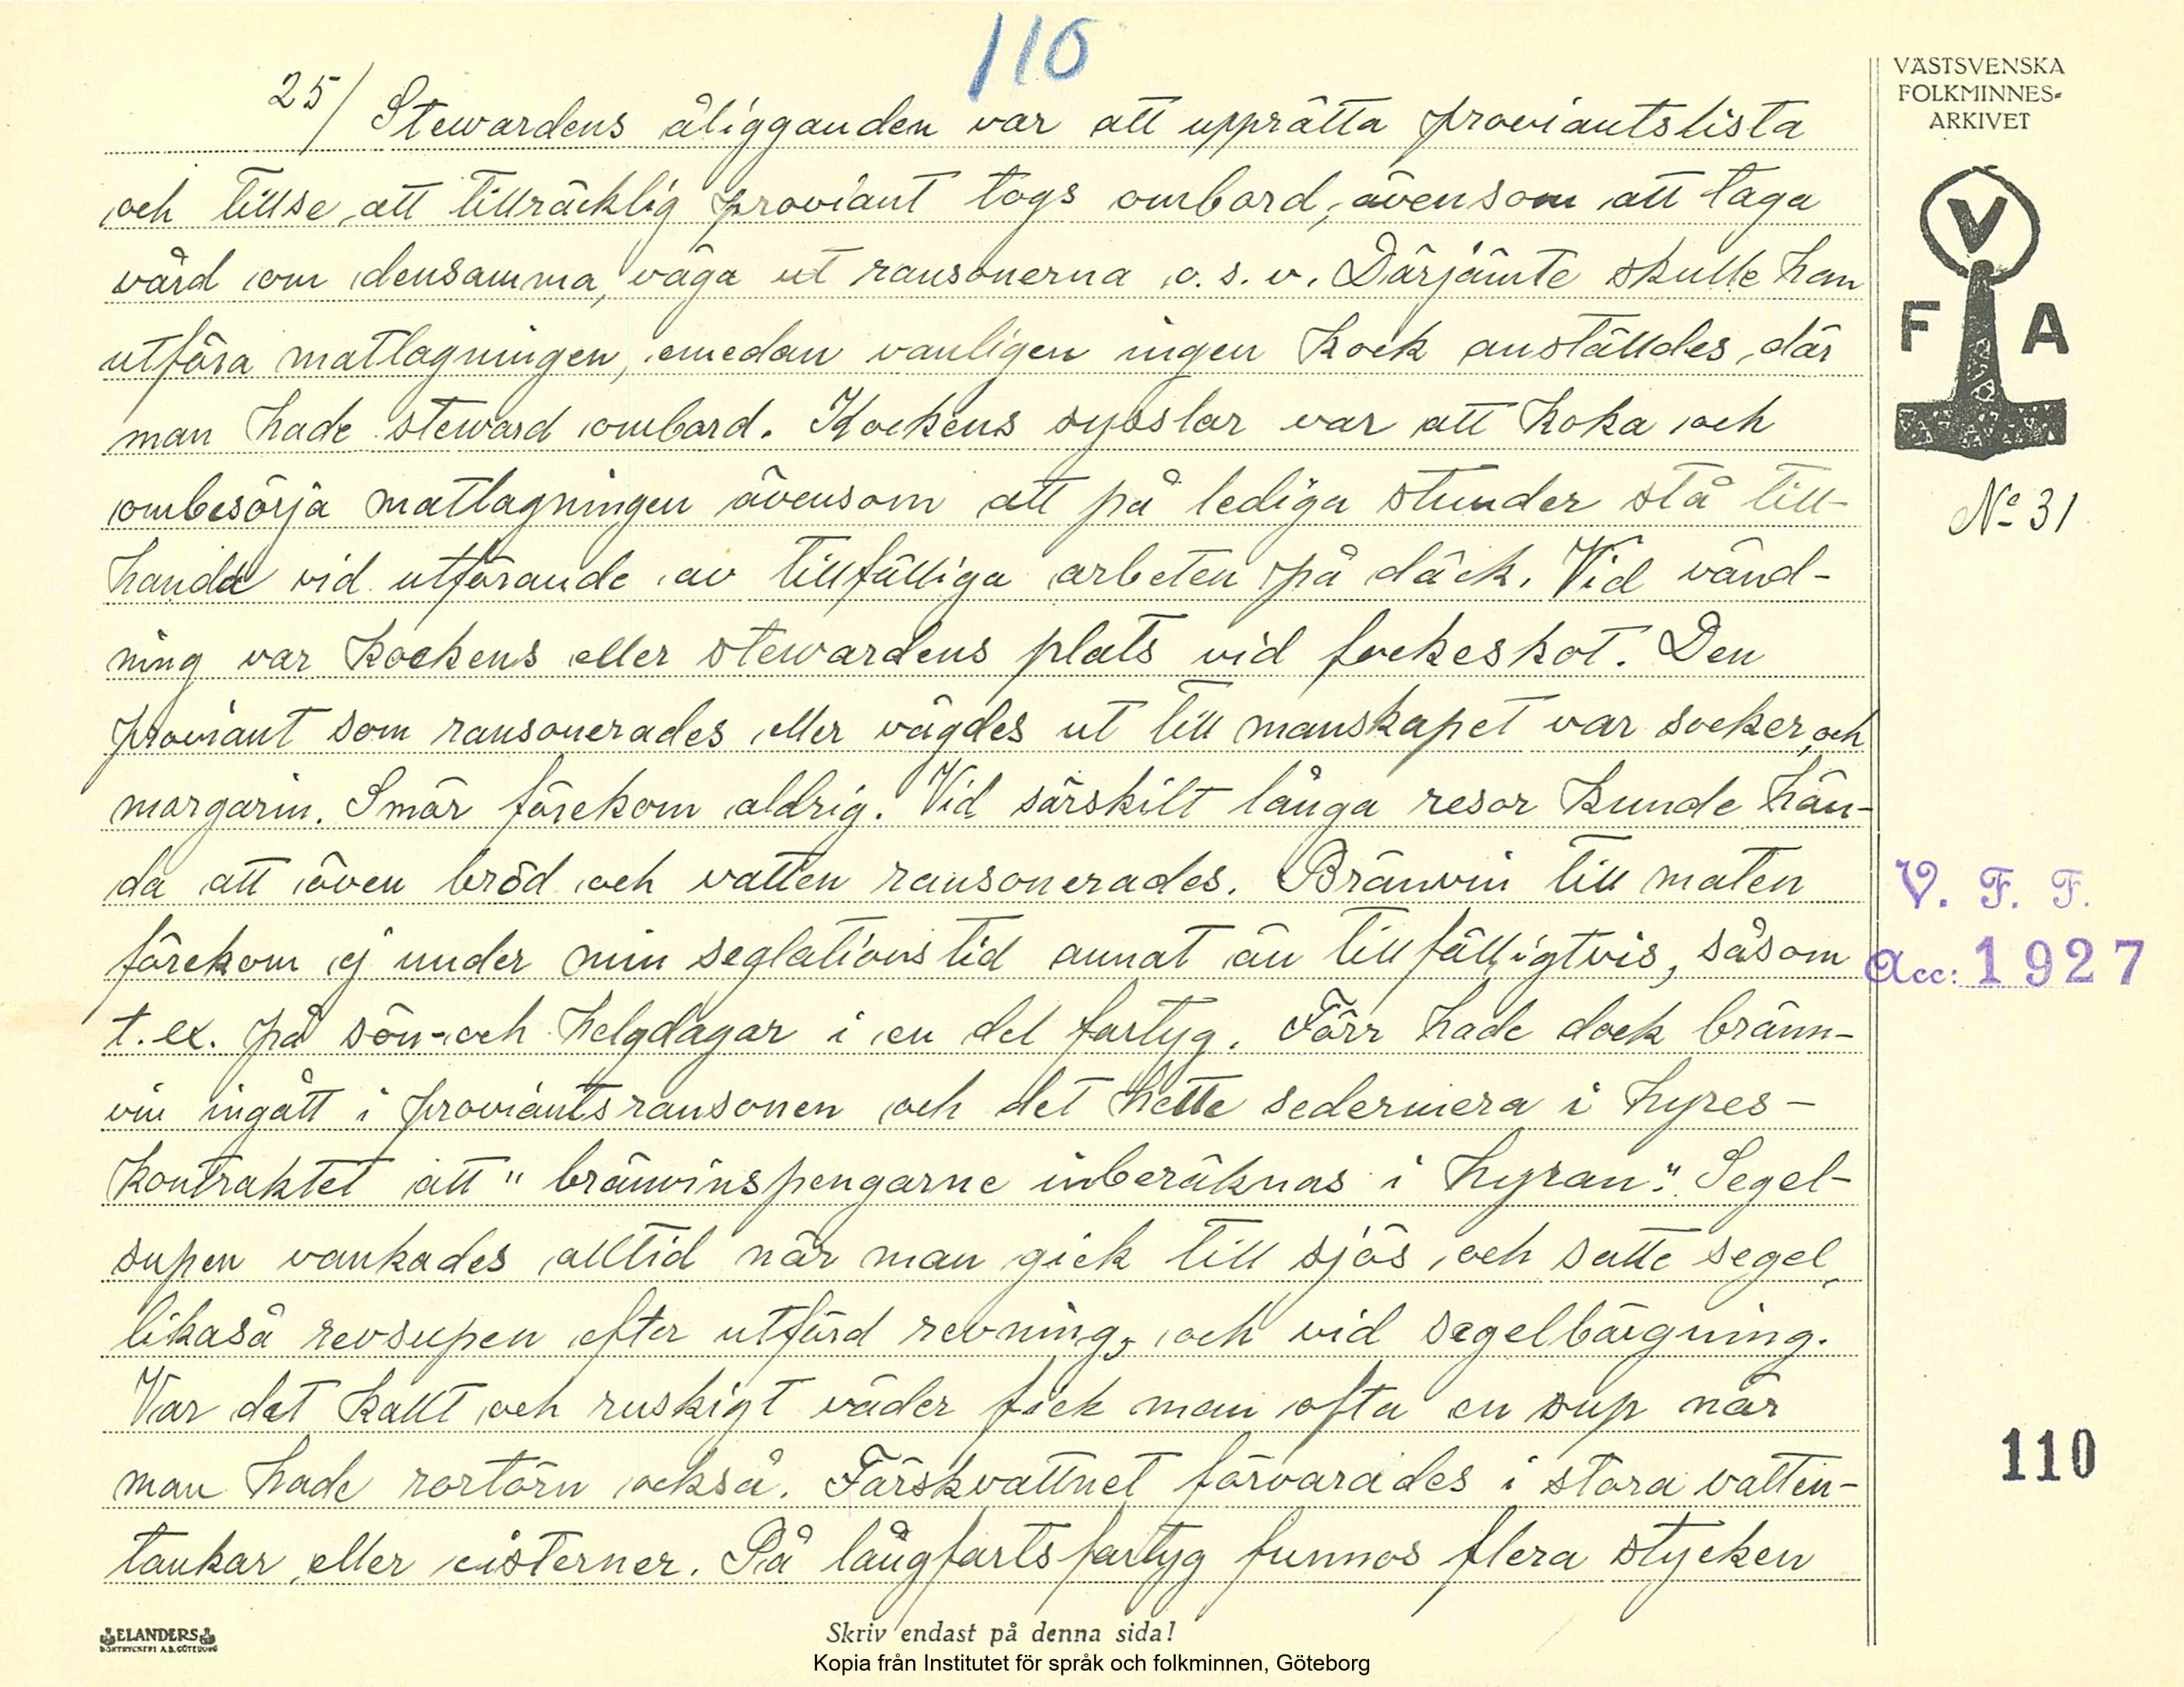 110
25/ Stewardens åligganden var att upprätta proviantslista
och tillse att tillräcklig proviant togs ombord, ävensom att taga
vård om densamma, väga ut ransonerna o. s. v. Därjämte skulle han
utföra matlagningen, emedan vanligen ingen kock anställdes, där
man hade steward ombord. Kockens sysslar var att koka och
ombesörja matlagningen ävensom att på lediga stunder stå till-
handa vid utförande av tillfälliga arbeten på däck. Vid vänd-
ning var kockens eller stewardens plats vid fockeskot. Den
proviant som ransonerades eller vägdes ut till manskapet var socker, och
margarin. Smör förekom aldrig. Vid särskilt långa resor kunde hän-
da att även bröd och vatten ransonerades. Bränvin till maten
förekom ej under min seglationstid annat än tillfälligtvis, såsom
t. ex. på sön- och helgdagar i en del fartyg. Förr hade dock bränn-
vin ingått i proviantsransonen och det hette sedermera i hyres-
kontraktet att "bränvinspengarne inberäknas i hyran". Segel-
supen vankades alltid när man gick till sjös och satte segel,
likaså revsupen efter utförd revning, och vid segelbärgning.
Var det kallt och ruskigt väder fick man ofta en sup när
man hade rortörn också. Färskvattnet förvarades i stora vatten-
tankar eller cisterner. På långfartsfartyg funnos flera stycken
VÄSTSVENSKA
FOLKMINNES-
ARKIVET
V
F A
No 31
V. F. F.
Acc: 1927
110
ELANDERS
BOKTRYCKERI A.B. GÖTEBORG
Skriv endast på denna sida!
Kopia från Institutet för språk och folkminnen, Göteborg